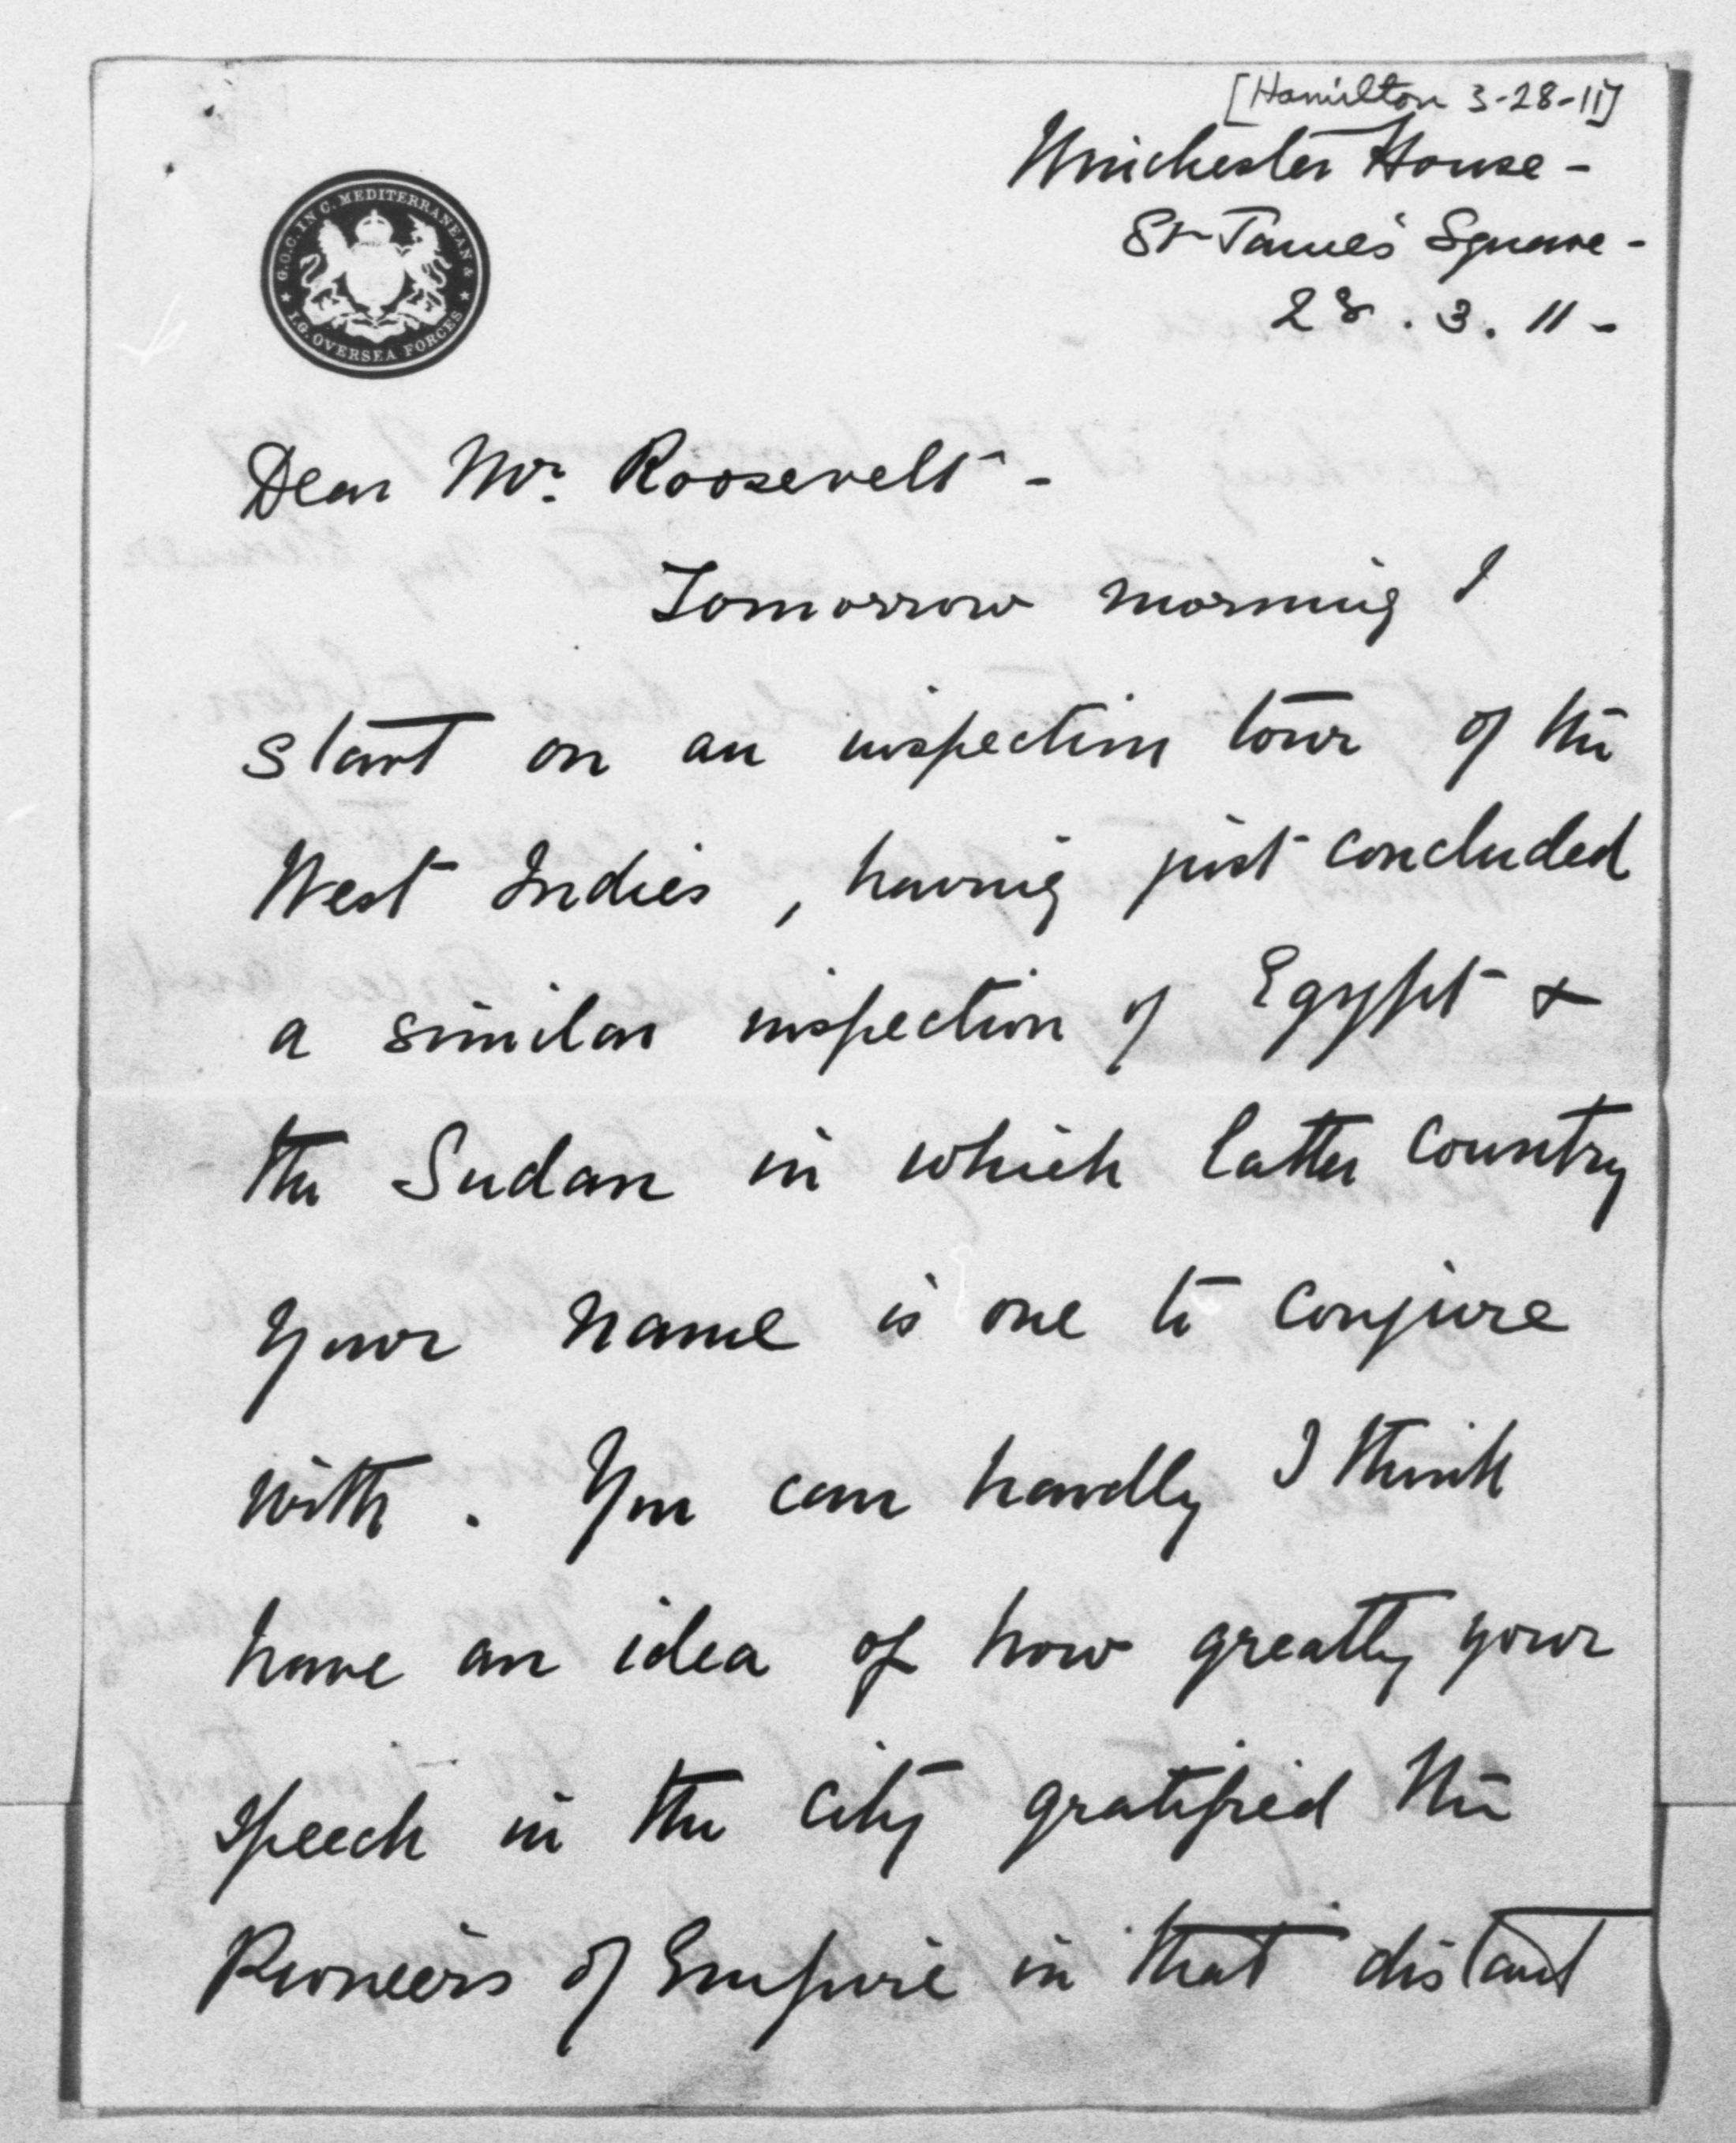 [Hamilton 3-28-11]
Winchester House -
St James' Square -
28 . 3 . 11 -
G.O.C. IN C. MEDITERRANEAN &
I.G. OVERSEA FORCES
Dear Mr. Roosevelt -
Tomorrow morning I
start on an inspection tour of the
West Indies , having just concluded
a similar inspection of Egypt &
the Sudan in which latter country
your name is one to conjure
with . You can hardly I think
have an idea of how greatly your
speech in the City gratified the
Pioneers of Empire in that distant